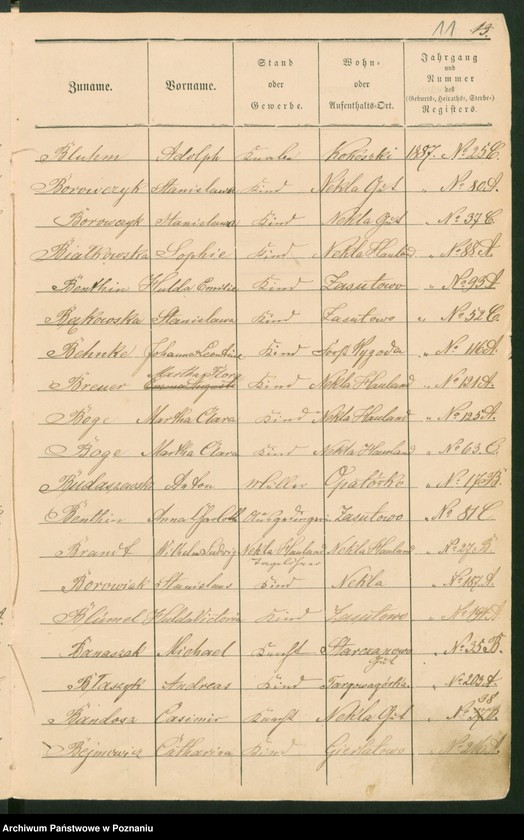 11 13.
Zuname. Vorname. Stand oder Gewerbe. Wohn- oder Aufenthalts-Ort. Jahrgang und Nummer des (Geburts-, Heiraths-, Sterbe-) Registers.
Bluhm Adolph Kokoszki 1887. No 25 C.
Borowczyk Stanislawa Kind Nekla Gut " No 80 A.
Borowczyk Stanislawa Kind Nekla Gut " No 37 C
Białkowska Sophie Kind Nekla Hauland " No 88 A.
Benthin Hulda Emilie Kind Zasutowo " No 95 A.
Bąkowska Stanislawa Kind Zasutowo " No 52 C.
Behnke Johanna Kind Wygoda " No 116 A.
Breuer Martha Kind Nekla Hauland " No 121 A.
Bege Martha Clara Kind Nekla Hauland " No 125 A.
Böge Martha Clara Kind Nekla Hauland " No 63. C.
Budaszewski Anton Müller Opatówko " No 17 B.
Benthin Anna Zasutowo " No 81 C
Brandt Wilhelm Ludwig Nekla Hauland Nekla Hauland " No 27. B.
Tagelöhner
Borowiak Stanislaus Kind Nekla " No 187. A.
Blümel Hulda Victoria Kind Zasutowo " No
Banaszak Michael Knecht Starczanowo " No 35 B.
Gut
Błaszyk Andreas Kind Targowagórka " No 203 A.
Bandosz Casimir Knecht Nekla Gut " No 38 B.
Bejmowicz Catharina Kind Gierłatowo " No
Archiwum Państwowe w Poznaniu